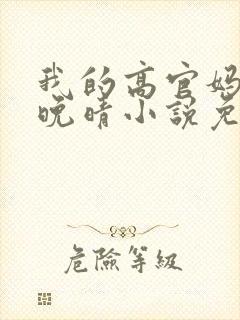 我的高官妈
晚晴小说免
危險等級